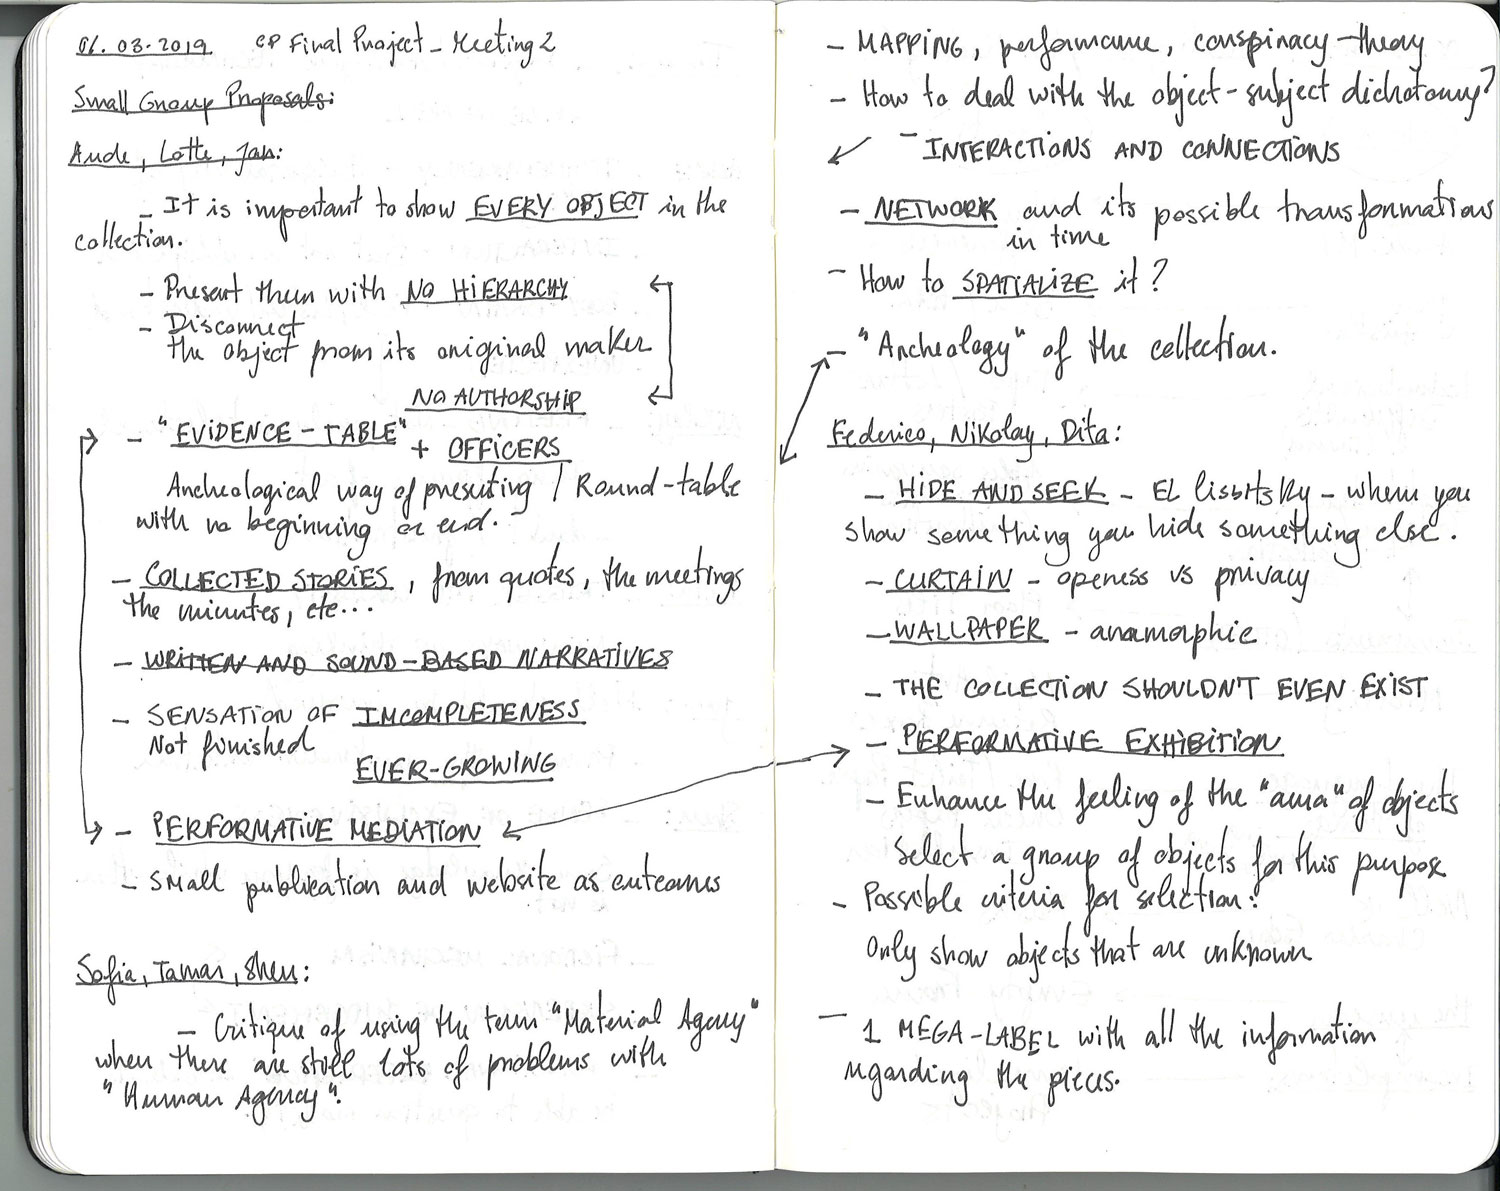 01.03.2019 CP Final Project - Meeting 2
Small Group Proposals:
Aude, Lotte, Jan:
- It is important to show EVERY OBJECT in the
collection.
- Present them with NO HIERARCHY
- Disconnect
the object from its original maker
NO AUTHORSHIP
- "EVIDENCE-TABLE" + OFFICERS
Archeological way of presenting / Round-table
with no beginning or end.
- COLLECTED STORIES, from quotes, the meetings
the minutes, etc...
- WRITTEN AND SOUND-BASED NARRATIVES
- SENSATION OF IMCOMPLETENESS
Not funished
EVER-GROWING
- PERFORMATIVE MEDIATION
- small publication and website as outcomes
Sofia, Tamar, Shen:
- Critique of using the term "Material Agency"
when there are still lots of problems with
"Human Agency".
- MAPPING, performance, conspinacy-theory
- How to deal with the object-subject dichotomy?
- INTERACTIONS AND CONNECTIONS
- NETWORK and its possible transformations
in time
- How to SPATIALIZE it?
- "Archeology" of the collection.
Federico, Nikolay, Dita:
- HIDE AND SEEK - EL lissitsky - when you
show something you hide something else.
- CURTAIN - openess vs privacy
- WALLPAPER - anamorphic
- THE COLLECTION SHOULDN'T EVEN EXIST
- PERFORMATIVE EXHIBITION
- Enhance the feeling of the "aura" of objects
Select a group of objects for this purpose
- Possible criteria for selection:
Only show objects that are unknown
- 1 MEGA-LABEL with all the information
regarding the pieces.